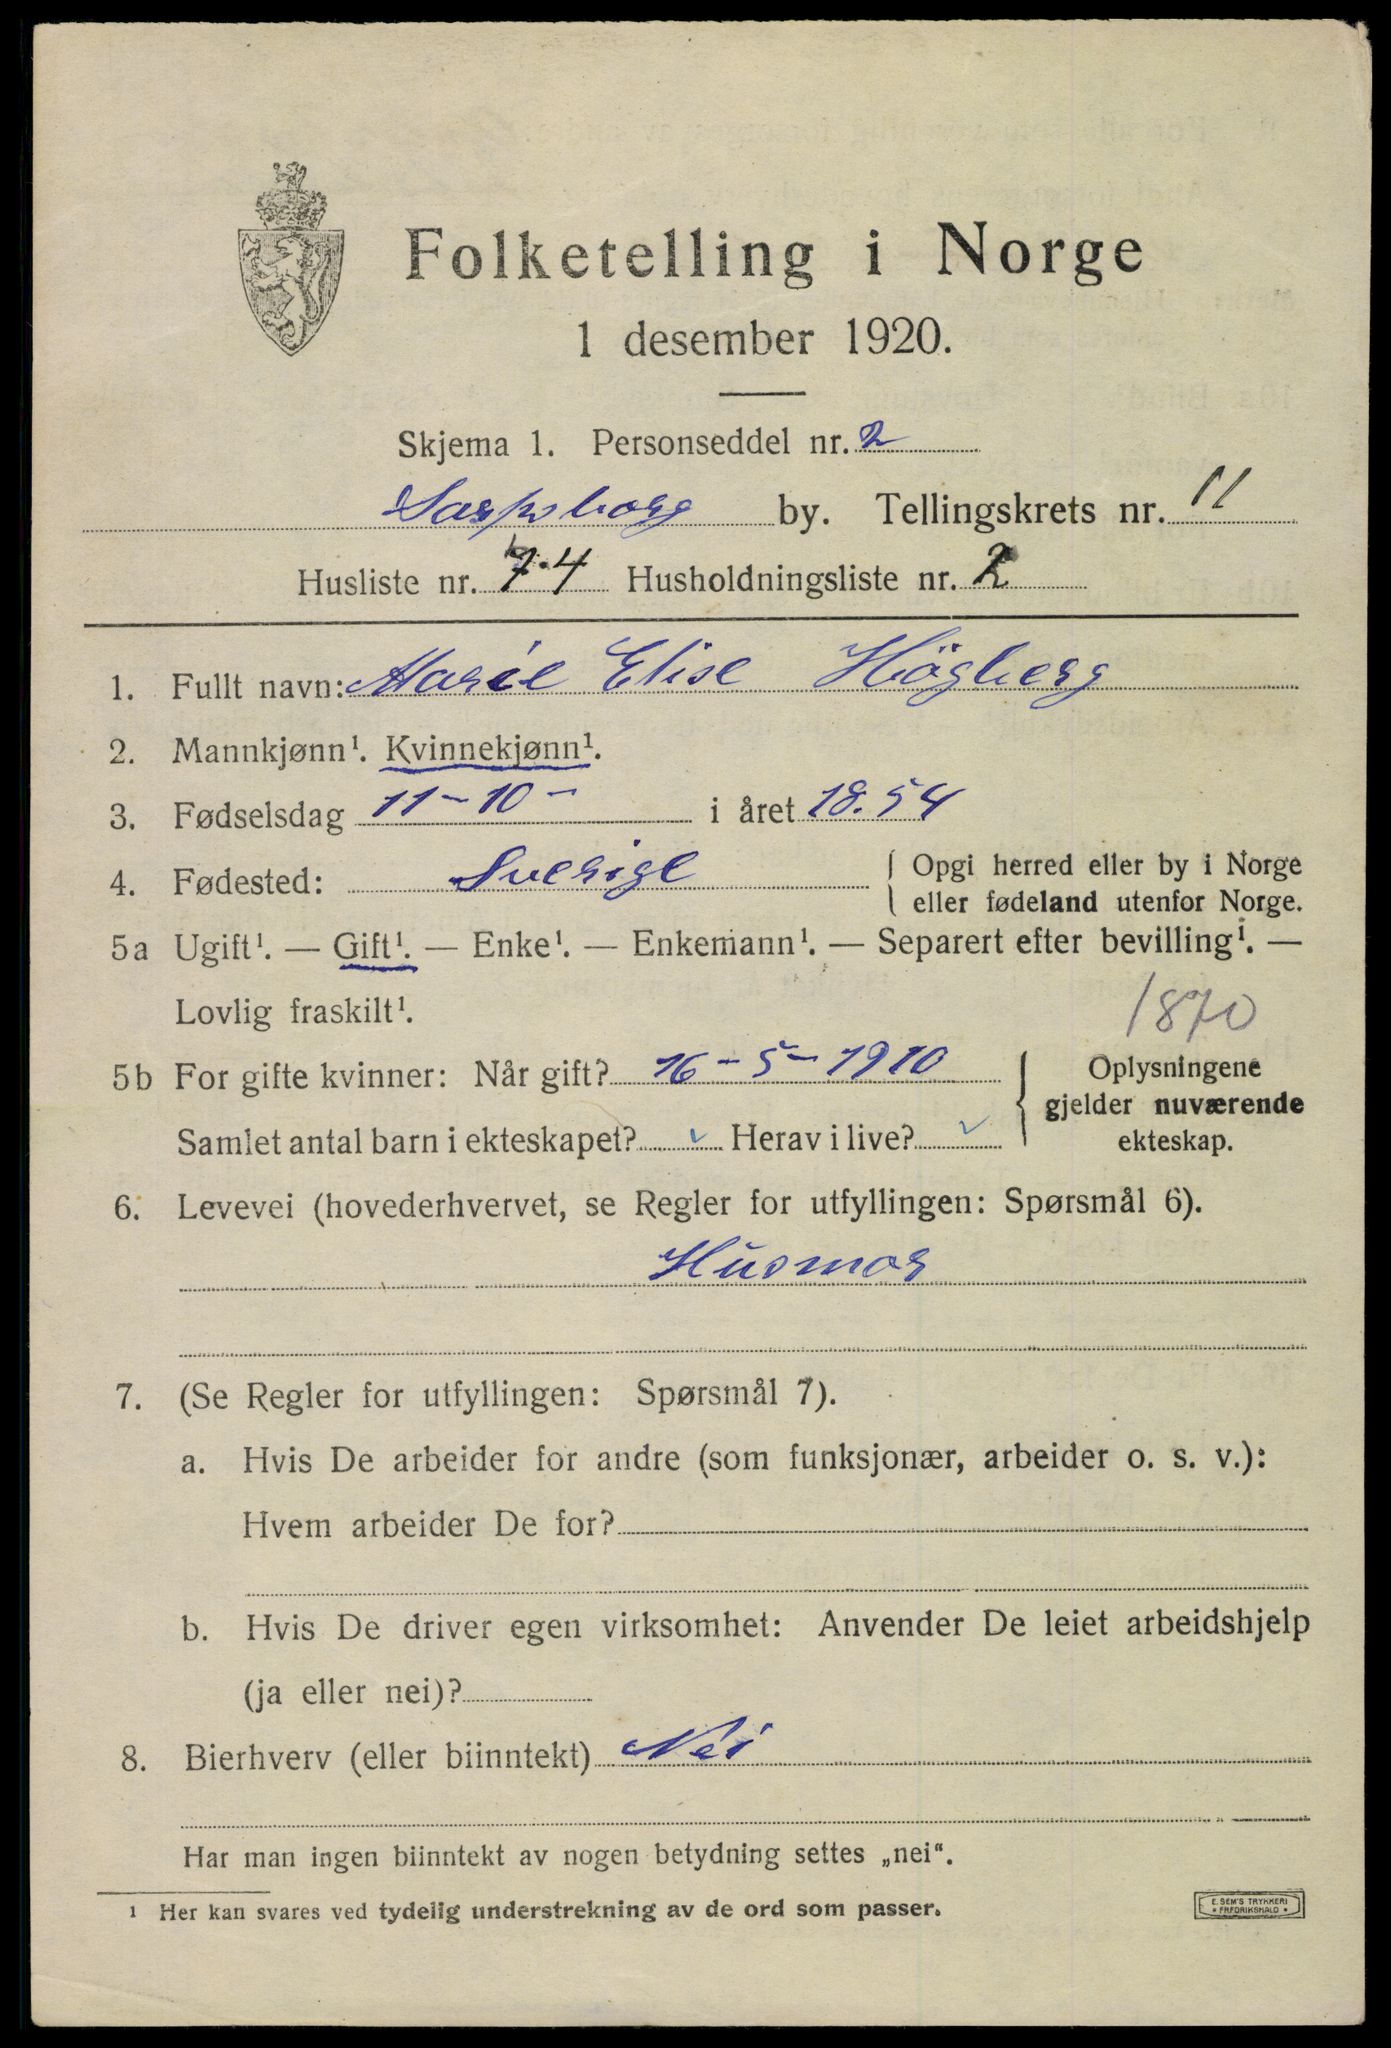 Folketelling i Norge
1 desember 1920.
Skjema 1. Personseddel nr. 2
Sarpsborg by. Tellingskrets nr. 11
Husliste nr. 74 Husholdningsliste nr. 2
1. Fullt navn: Marie Elise Högberg
2. Mannkjønn¹. Kvinnekjønn¹.
3. Fødselsdag 11-10- i året 1854
4. Fødested: Sverige { Opgi herred eller by i Norge
eller fødeland utenfor Norge.
5a Ugift¹. — Gift¹. — Enke¹. — Enkemann¹. — Separert efter bevilling¹. —
Lovlig fraskilt¹.
1870
5b For gifte kvinner: Når gift? 16-5-1910
Samlet antal barn i ekteskapet? ✓ Herav i live? ✓
Oplysningene
gjelder nuværende
ekteskap.
6. Levevei (hovederhvervet, se Regler for utfyllingen: Spørsmål 6).
Husmor
7. (Se Regler for utfyllingen: Spørsmål 7).
a. Hvis De arbeider for andre (som funksjonær, arbeider o. s. v.):
Hvem arbeider De for?
b. Hvis De driver egen virksomhet: Anvender De leiet arbeidshjelp
(ja eller nei)?
8. Bierhverv (eller biinntekt) Nei
Har man ingen biinntekt av nogen betydning settes „nei“.
¹ Her kan svares ved tydelig understrekning av de ord som passer.
E. SEM'S TRYKKERI
• FREDRIKSHALD •